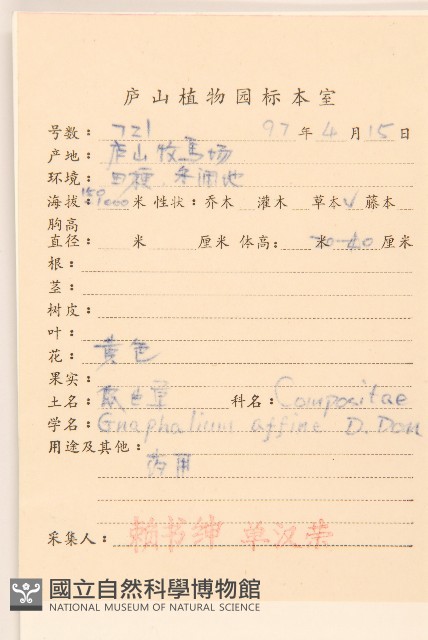 庐山植物园标本室
号数: 721 97年4月15日
产地: 庐山牧马场
环境: 田梗
海拔: 150 1000米 性状: 乔木 灌木 草本√ 藤本
胸高
直径: 米 厘米 体高: 米 40厘米
根:
茎:
树皮:
叶:
花: 黄色
果实:
土名: 科名: Compositae
学名: Gnaphalium affine D. Don
用途及其他:
药用
采集人: 赖书绅 单汉荣
國立自然科學博物館
NATIONAL MUSEUM OF NATURAL SCIENCE